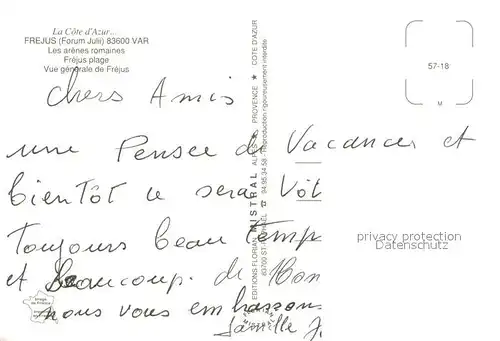 La Côte d'Azur...
FREJUS (Forum Julii) 83600 VAR
Les arènes romaines
Fréjus plage
Vue générale de Fréjus
57-18
M
EDITIONS FLORIAN MISTRAL ALPES ★ PROVENCE ★ COTE D'AZUR
83700 ST ☎ 94.95.34.58 - Reproduction rigoureusement interdite
chers Amis
une Pensée de Vacances et
bientôt ce sera Vôt
Toujours beau Temp
et Beaucoup de Mon
nous vous embrasson
famille J.
privacy protection
Datenschutz